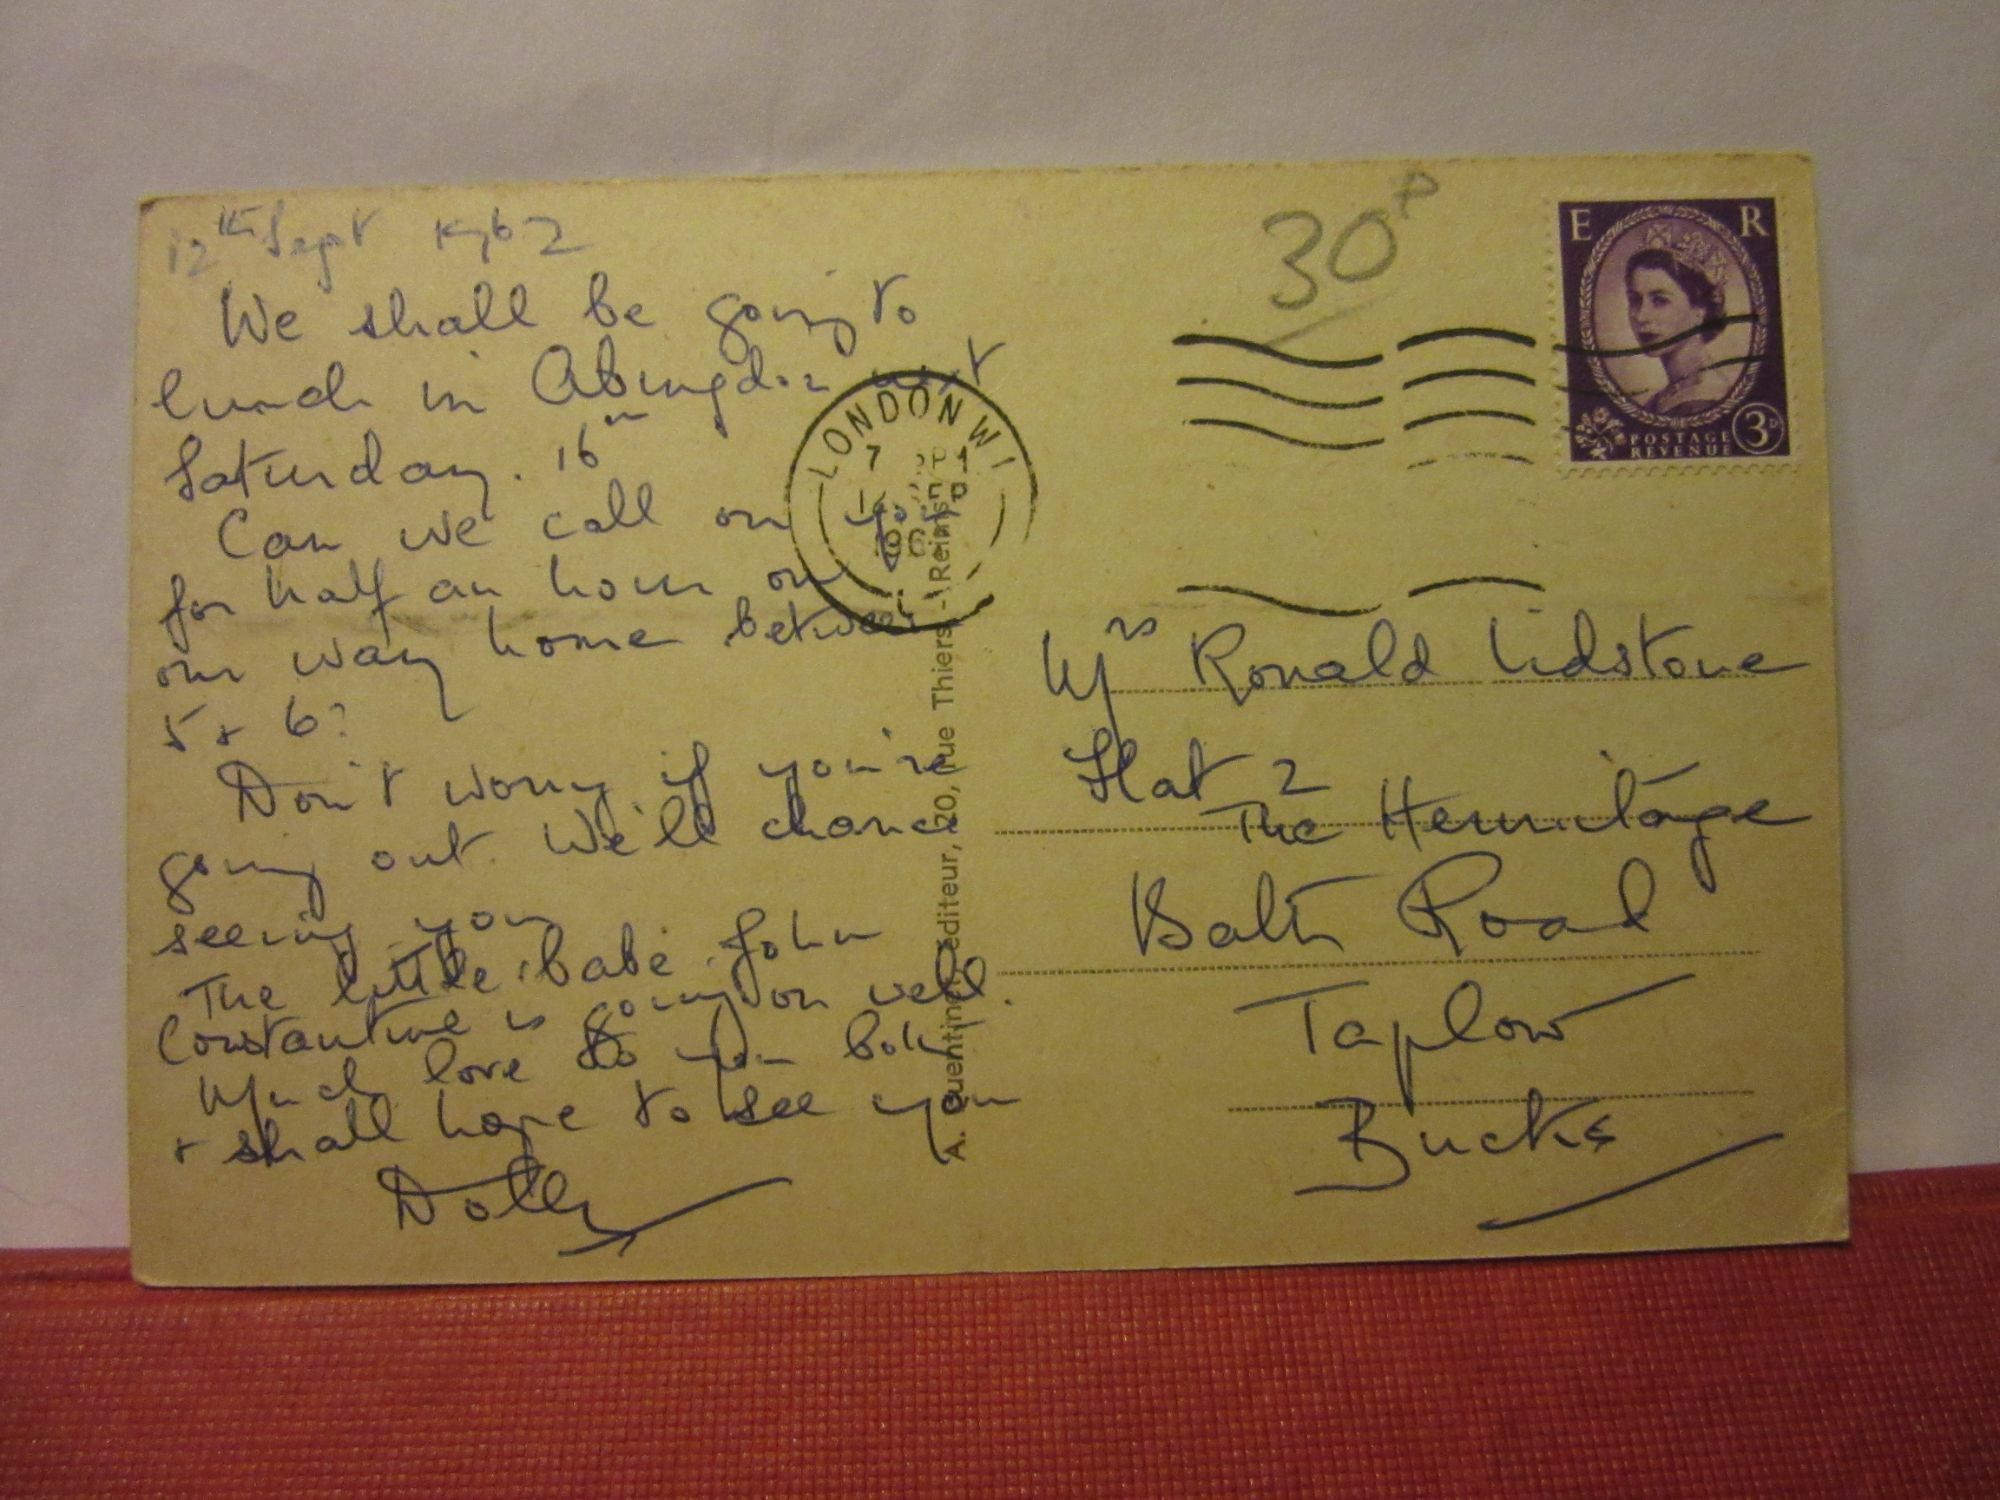 12th Sept 1962
We shall be going to
lunch in Abingdon next
Saturday. 16th
Can we call on you
for half an hour on
our way home between
5 & 6?
Don't worry if you're
going out. We'll chance
seeing you
The little babe John
Constantine is going on well.
Much love to you both
& shall hope to see you
Dolly
LONDON W1
7
A. Quentinet, éditeur, 20, rue Thiers - Reims
30P
E R
POSTAGE
REVENUE
3D
Mrs Ronald Lidstone
Flat 2
The Hermitage
Bath Road
Taplow
Bucks